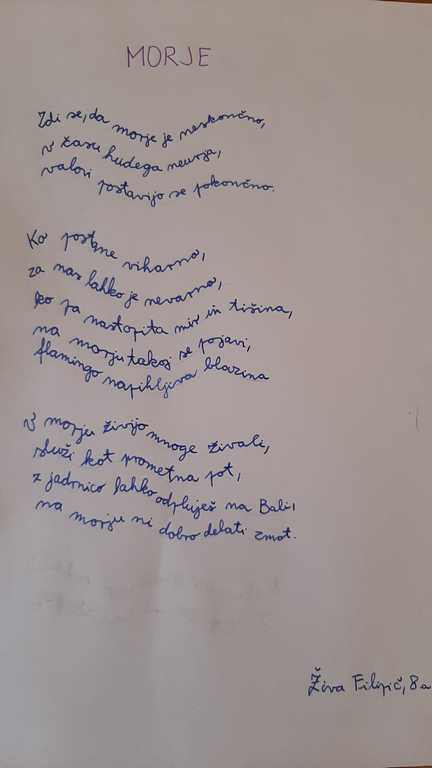 MORJE
Zdi se, da morje je neskončno,
v času hudega neurja,
valovi postavijo se pokončno.
Ko postane viharno,
za nas lahko je nevarno,
ko pa nastopita mir in tišina,
na morju takoj se pojavi,
flamingo napihljiva blazina
V morju živijo mnoge živali,
služi kot prometna pot,
z jadrnico lahko odpluješ na Bali,
na morju ni dobro delati zmot.
Živa Filipič, 8a